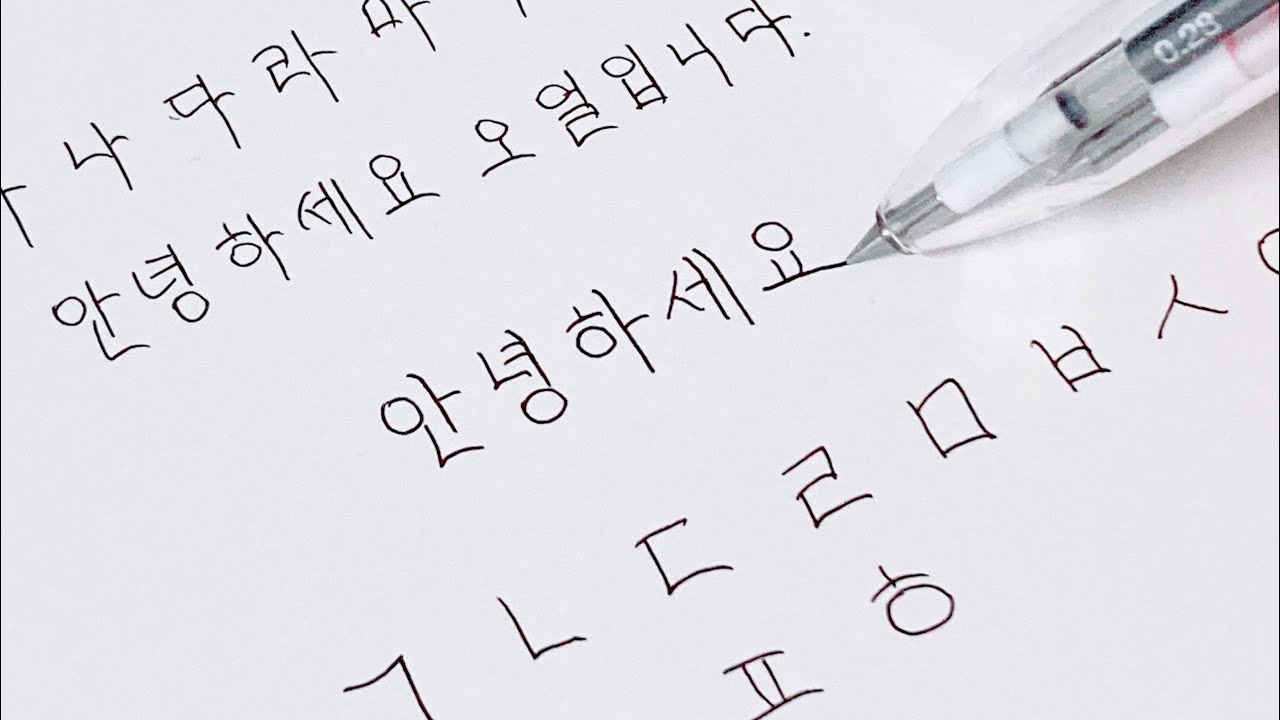 나 다 라 마
안녕하세요 오열입니다.
안녕하세요
ㄱ ㄴ ㄷ ㄹ ㅁ ㅂ ㅅ ㅇ
ㅍ ㅎ
0.28